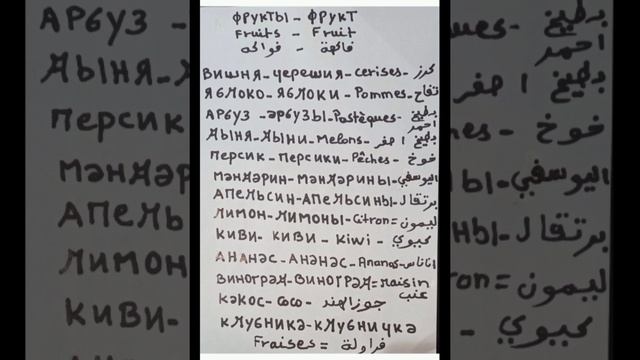 ФРУКТЫ - ФРУКТ
Fruits - Fruit
فواكه - فاكهة
ВИШНЯ - ЧЕРЕШНЯ - cerises - كرز
ЯБЛОКО - ЯБЛОКИ - Pommes - تفاح
АРБУЗ - АРБУЗЫ - Pastèques - بطيخ احمر
ДЫНЯ - ДЫНИ - Melons - بطيخ اصفر
ПЕРСИК - ПЕРСИКИ - Pêches - خوخ
МАНДАРИН - МАНДАРИНЫ - اليوسفي
АПЕЛЬСИН - АПЕЛЬСИНЫ - برتقال
ЛИМОН - ЛИМОНЫ - Citron = ليمون
КИВИ - КИВИ - Kiwi - كيوي
АНАНАС - АНАНАС - Ananas - اناناس
ВИНОГРАД - ВИНОГРАД = Raisin عنب
КАКОС - Coco - جوز الهند
КЛУБНИКА - КЛУБНИЧКА
Fraises = فراولة